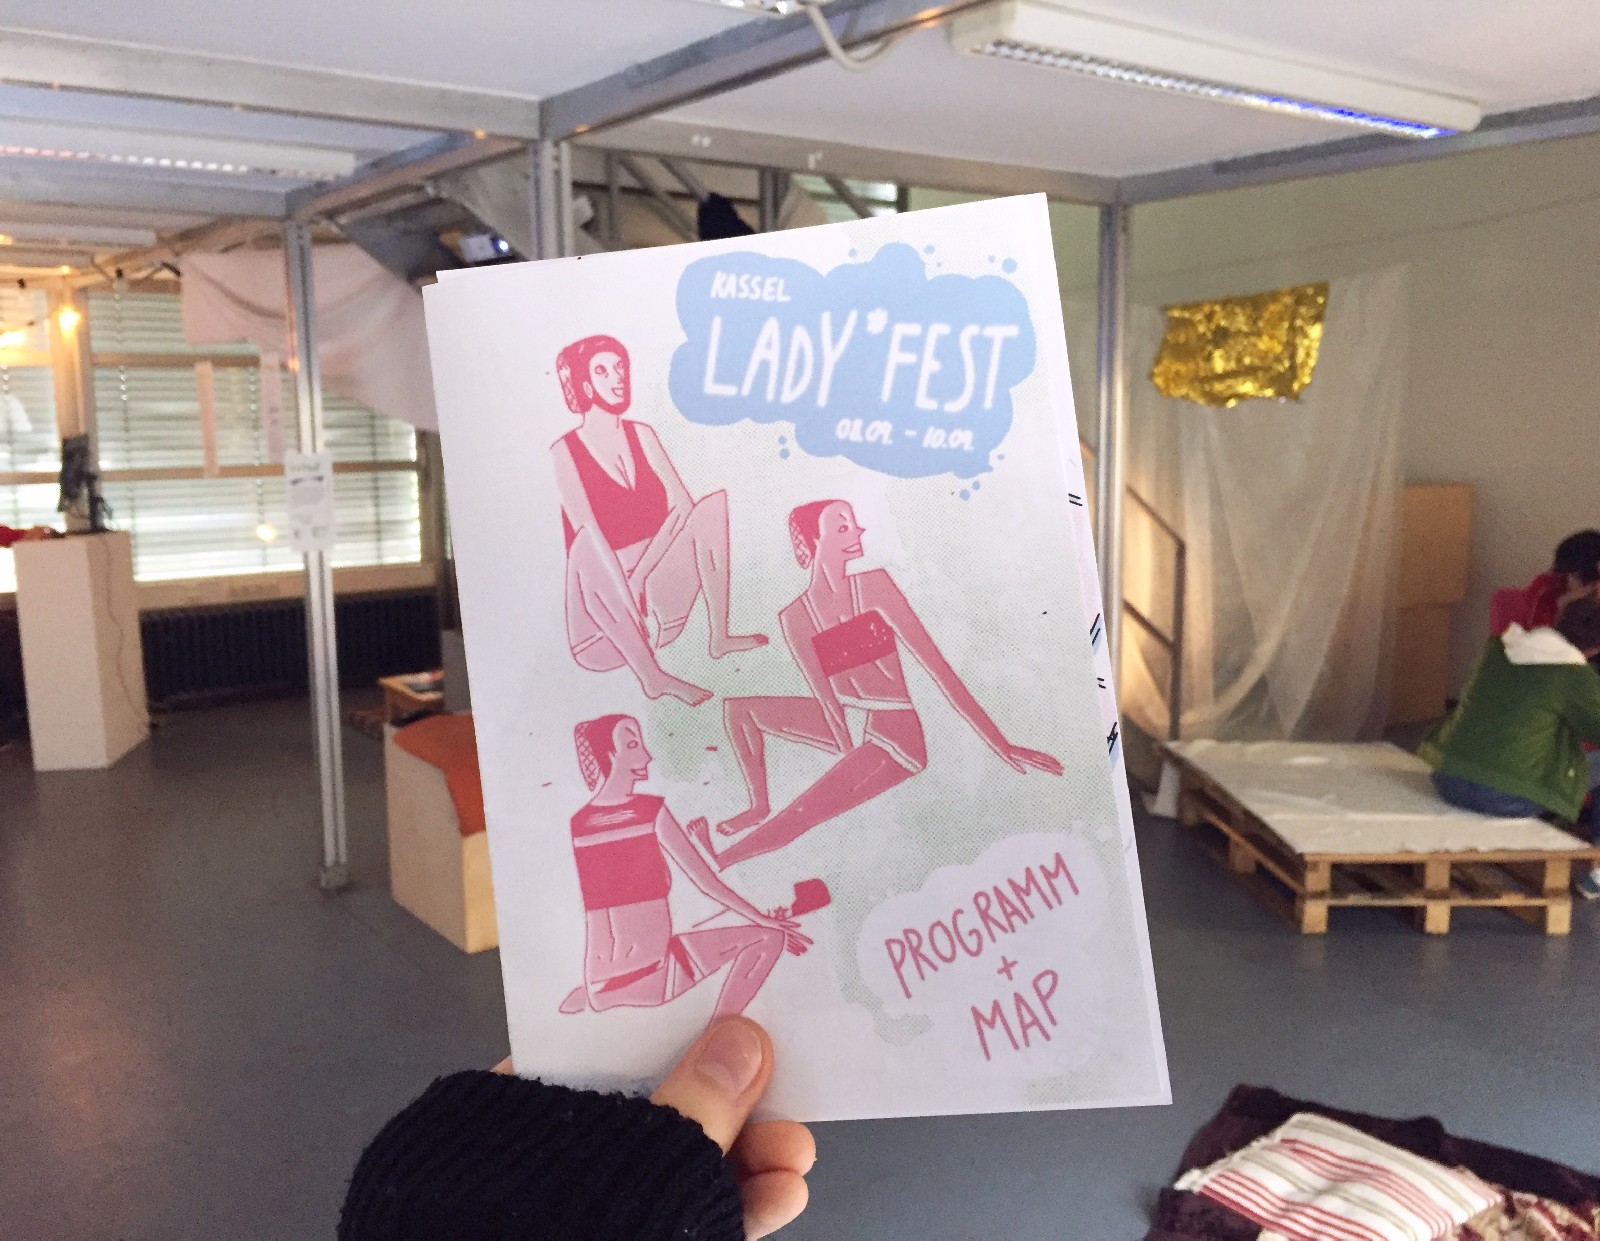 KASSEL
LADY*FEST
08.09. - 10.09.
PROGRAMM
+
MAP